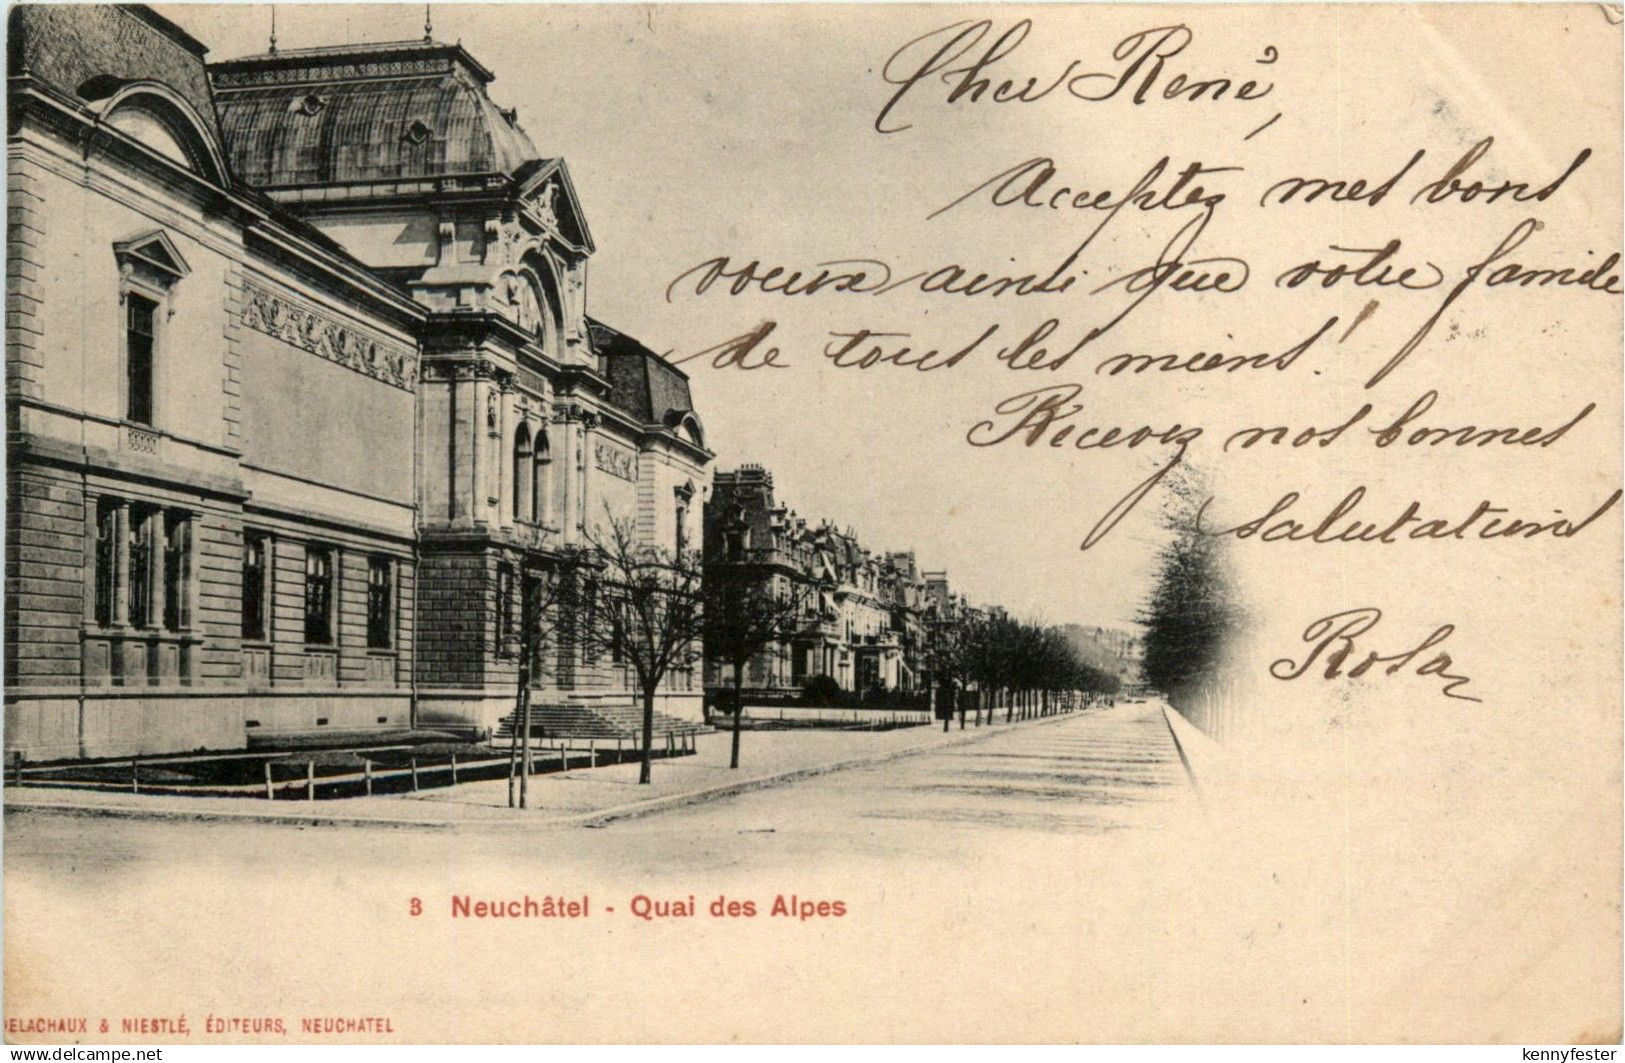 Cher René,
Acceptez mes bons
voeux ainsi que votre famille
de tous les miens!
Recevez nos bonnes
salutations
Rosa
3 Neuchâtel - Quai des Alpes
DELACHAUX & NIESTLÉ, ÉDITEURS, NEUCHATEL
www.delcampe.net
kennyfester